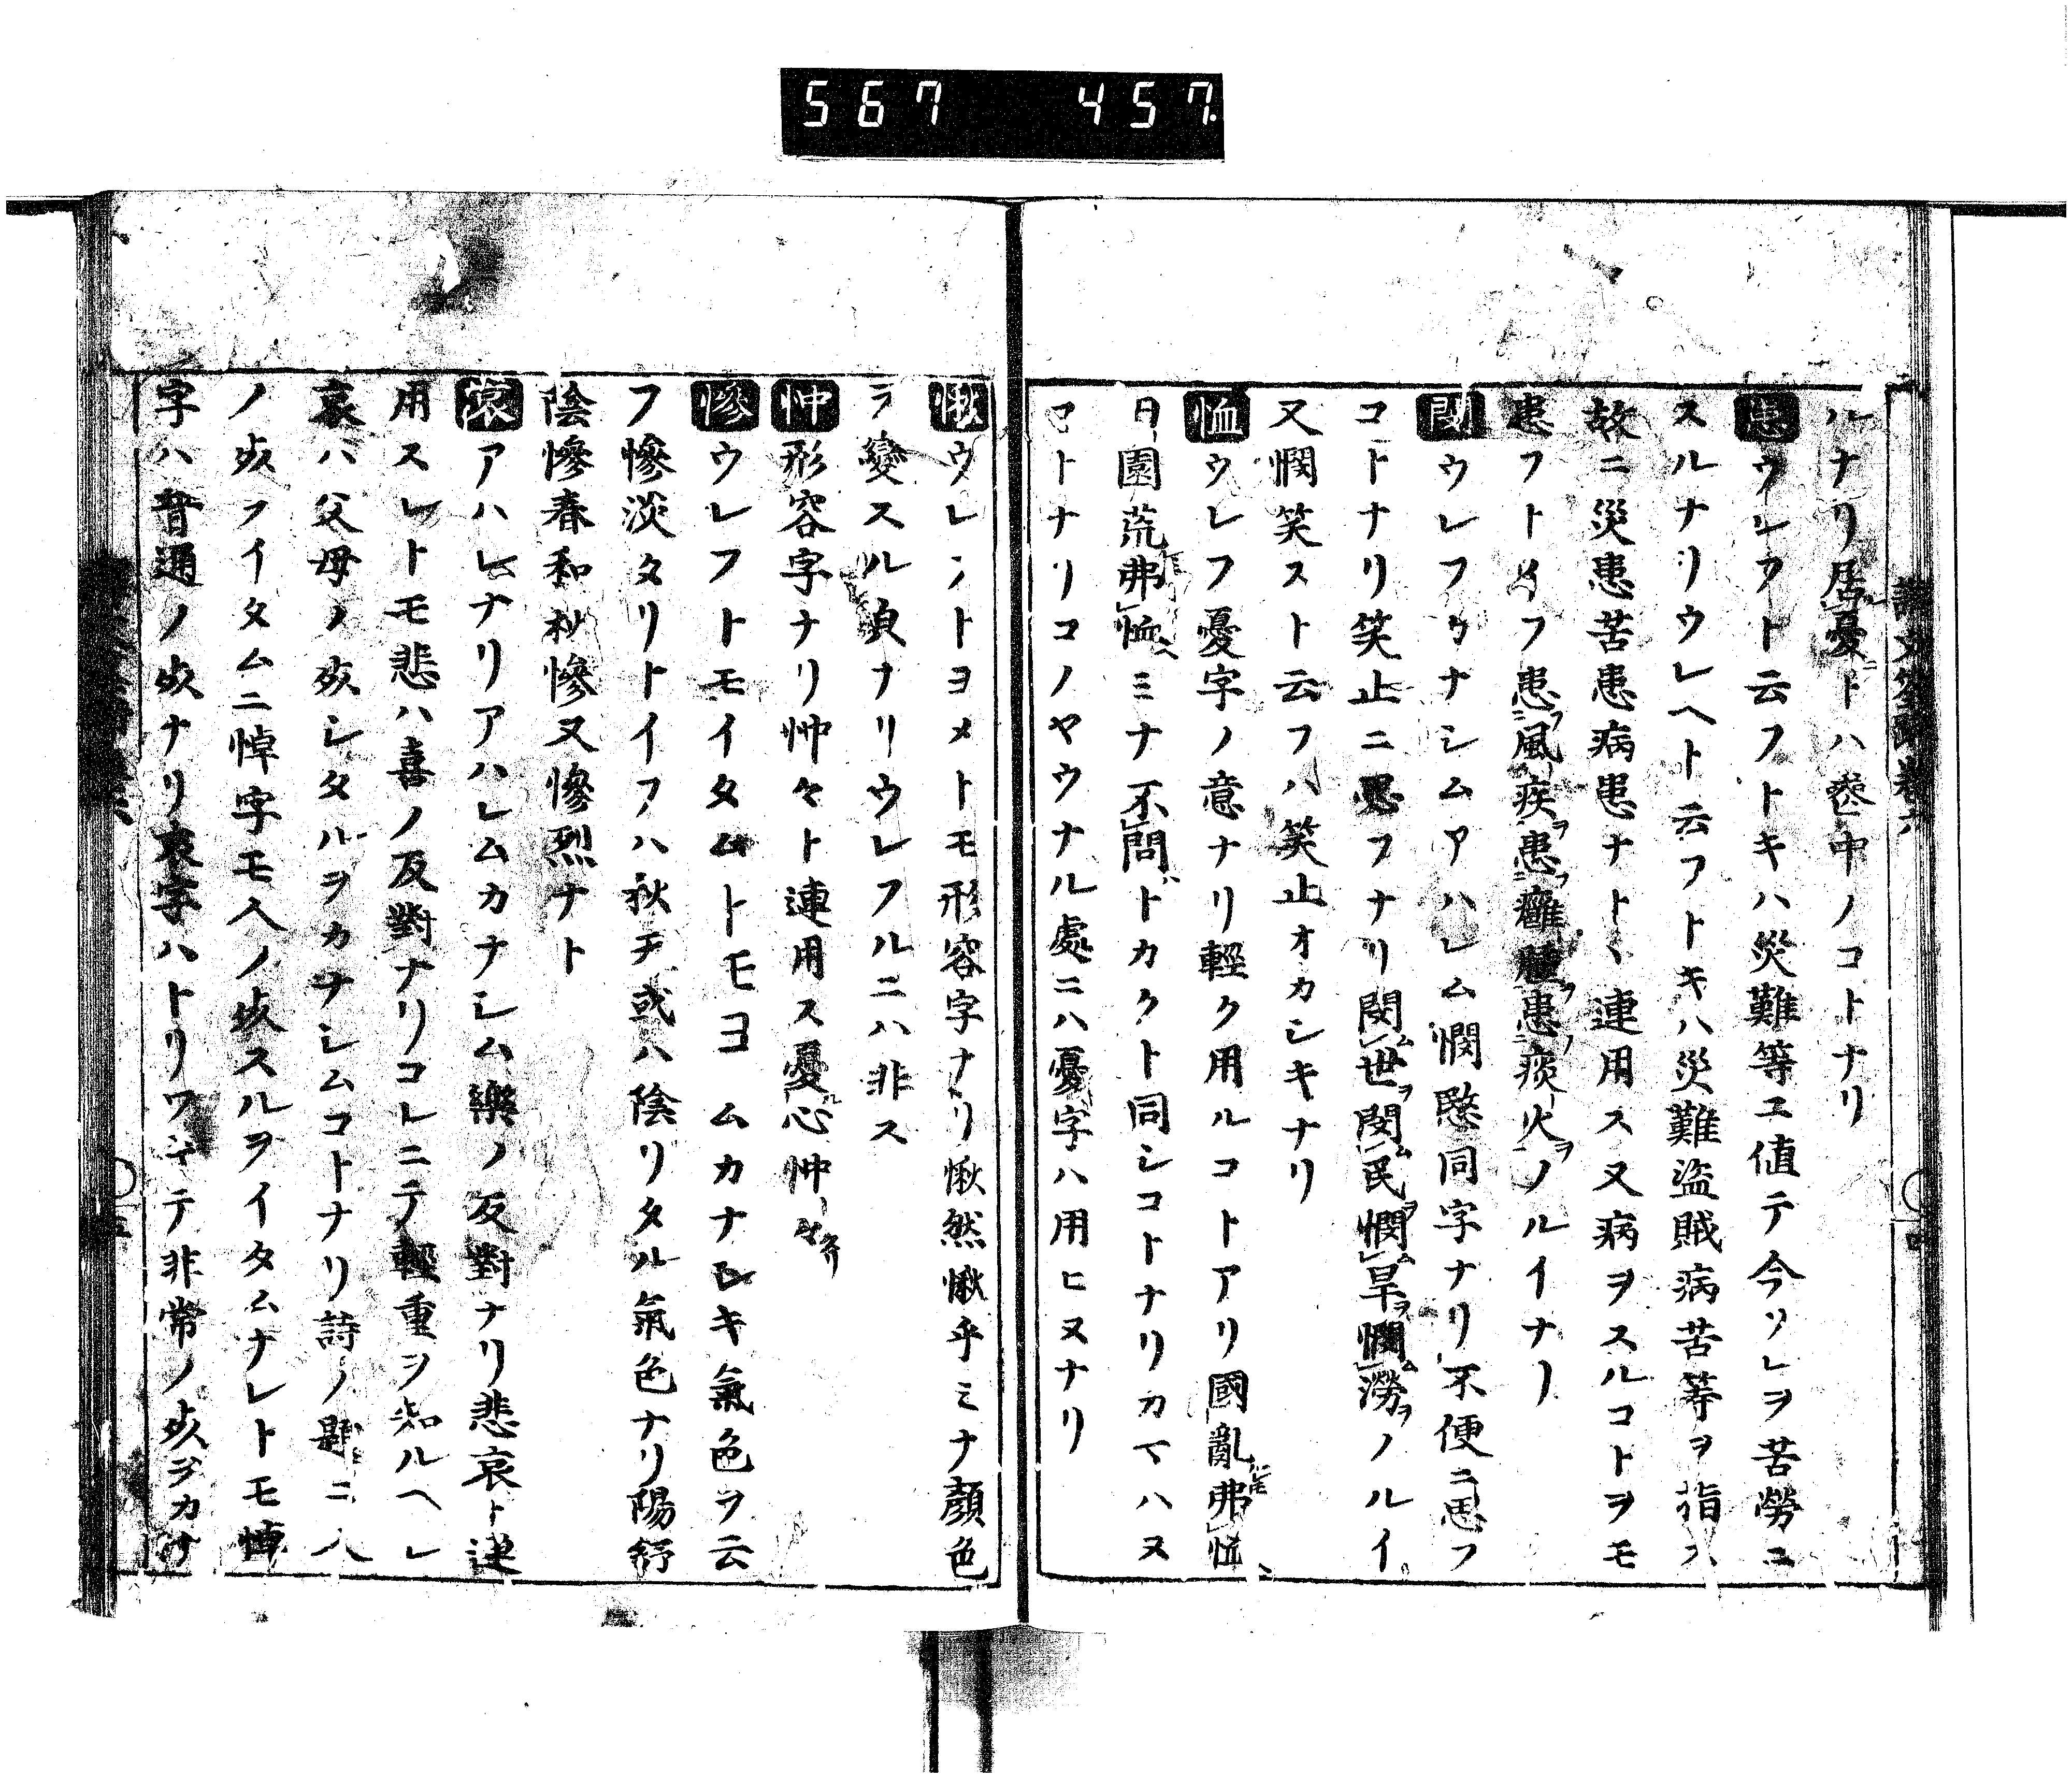 567 457
ルナリ居憂トハ喪中ノコトナリ
患ウレフト云フトキハ災難等ニ値テ今ソレヲ苦勞ニ
スルナリウレヘト云フトキハ災難盗賊病苦等ヲ指ス
故ニ災患苦患病患ナトヽ連用ス又病ヲスルコトヲモ
患フトイフ患風疾患癰腫患痰火ノルイナリ
閔ウレフカナシムアハレム憫愍同字ナリ不便ニ思フ
コトナリ笑止ニ思フナリ閔世閔民憫旱憫澇ノルイ
又憫笑スト云フハ笑止オカシキナリ
恤ウレフ憂字ノ意ナリ輕ク用ルコトアリ國亂弗恤
日園荒弗恤ミナ不問ドカクト同シコトナリカマハヌ
コトナリコノヤウナル處ニハ憂字ハ用ヒヌナリ
愀ウレントヨメトモ形容字ナリ愀然愀乎ミナ顏色
ヲ變スル皃ナリウレフルニハ非ス
忡形容字ナリ忡々ト連用ス憂心忡々
慘ウレフトモイタムトモヨムカナシキ氣色ヲ云
フ慘淡タリトイフハ秋天或ハ陰リタル氣色ナリ陽舒
陰慘春和秋慘又慘烈ナト
哀アハレムナリアハレムカナシム樂ノ反對ナリ悲哀ト連
用スレトモ悲ハ喜ノ反對ナリコレニテ輕重ヲ知ルヘシ
哀ハ父母ノ死シタルヲカナシムコトナリ詩ノ題ニ人
ノ死フイタムニ悼字モ人ノ死スルヲイタムナレトモ悼
字ハ普通ノ死ナリ哀字ハトリワキテ非常ノ死ヲカナ